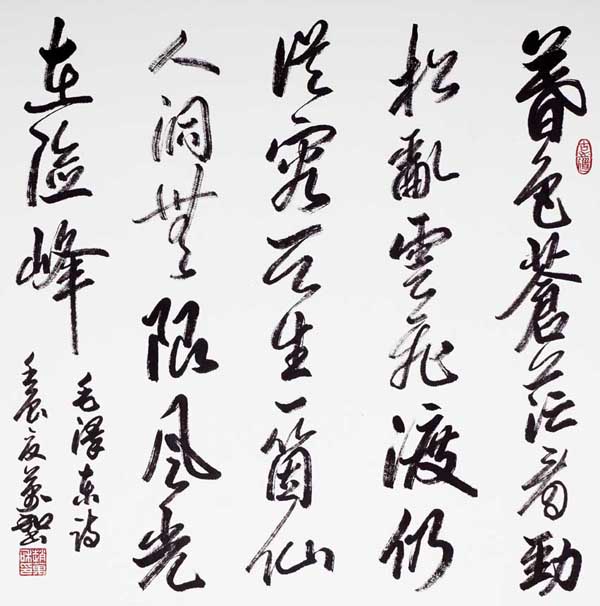 暮色蒼茫看勁
松亂雲飛渡仍
從容天生一箇仙
人洞無限風光
在險峰
毛澤東詩
壬辰夏